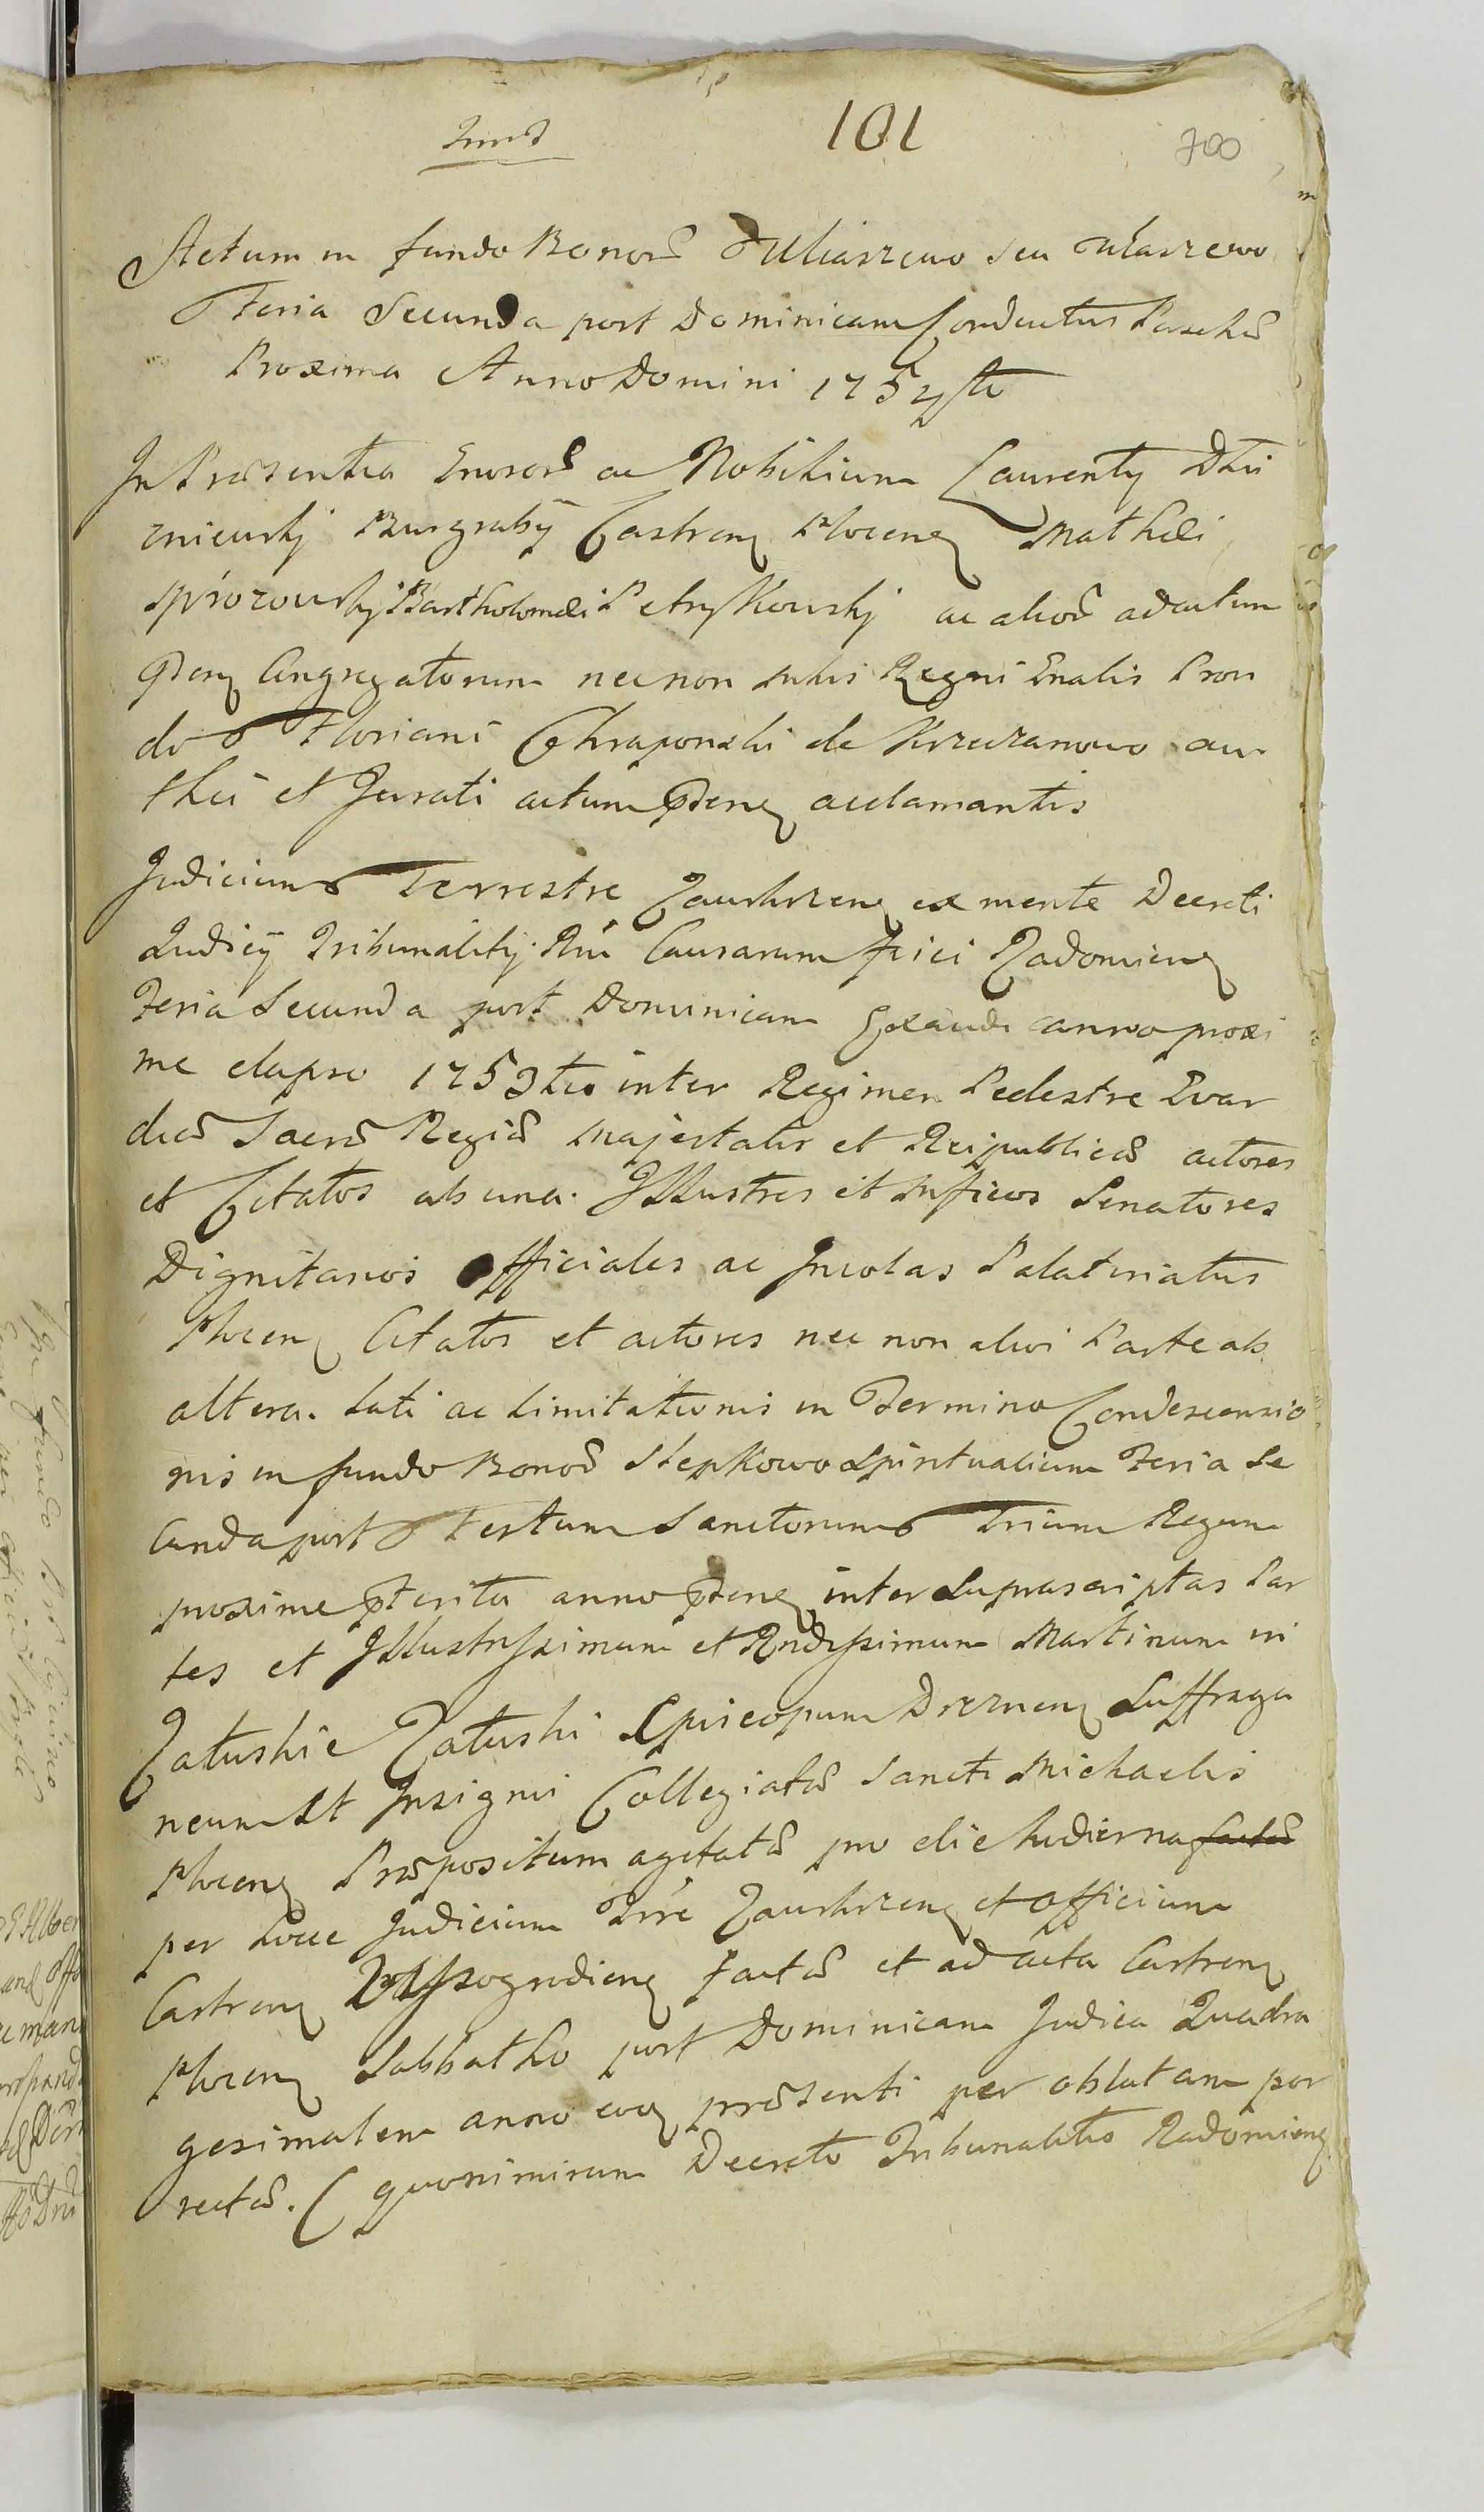 101
700
Actum in fundo Bonorũ Uliaszewo seu Ułaszewo
Feria Secunda post Dominicam Conductus Paschæ
Proxima Anno Domini 1754to
In Præsentia Gnrosorũ ac Nobilium Laurentÿ
Burgrabÿ Castren Plocen Mathæi
Bartholomæi Petrykowskj ac aliorũ ad actum
Pñen Congregatorum nec non Mnlis Regni Gnalis Provi
di Floriani Chraponski de Krzczanowo au
thci et Jurati actum Pñen acclamantis
Judicium Terrestre Zawkrzen ex mente Decreti
Judicÿ Tribunalitÿ Rni Causarum fisci Radomien
Feria Secunda post Dominicam Exaudi anno proxi
me elapso 1753tio inter Regimen Pedestre Gvar
diæ Sacræ Regiæ Majestatis et Reipublicæ actores
et Citatos ab una. Illustres et Mgficos Senatores
Dignitarios Officiales ac Incolas Palatinatus
Plocen Citatos et actores nec non alios Parte ab
altera. Lati ac Limitationis in Termino Condescensio
nis in fundo Bonorũ Slepkowo Spiritualium Feria Se
cunda post Festum Sanctorum Trium Regum
proxime Pterita anno Pñen inter Suprascriptas Par
tes et Illustrissimum et Rndissimum Martinum in
Załuskie Załuski Episcopum Drznen Suffraga
neum et Insignis Collegiatæ Sancti Michaelis
Plocen Præpositum agitatæ pro die hodierna factæ
per hocce Judicium Trre Zawkrzen et officium
Castren Wyszogrodien factæ et ad acta Castren
Plocen Sabbatho post Dominicam Judica Quadra
gesimalem anno eoq præsenti per oblatam por
rectæ. (quonimirum Decreto Tribunalitio Radomien